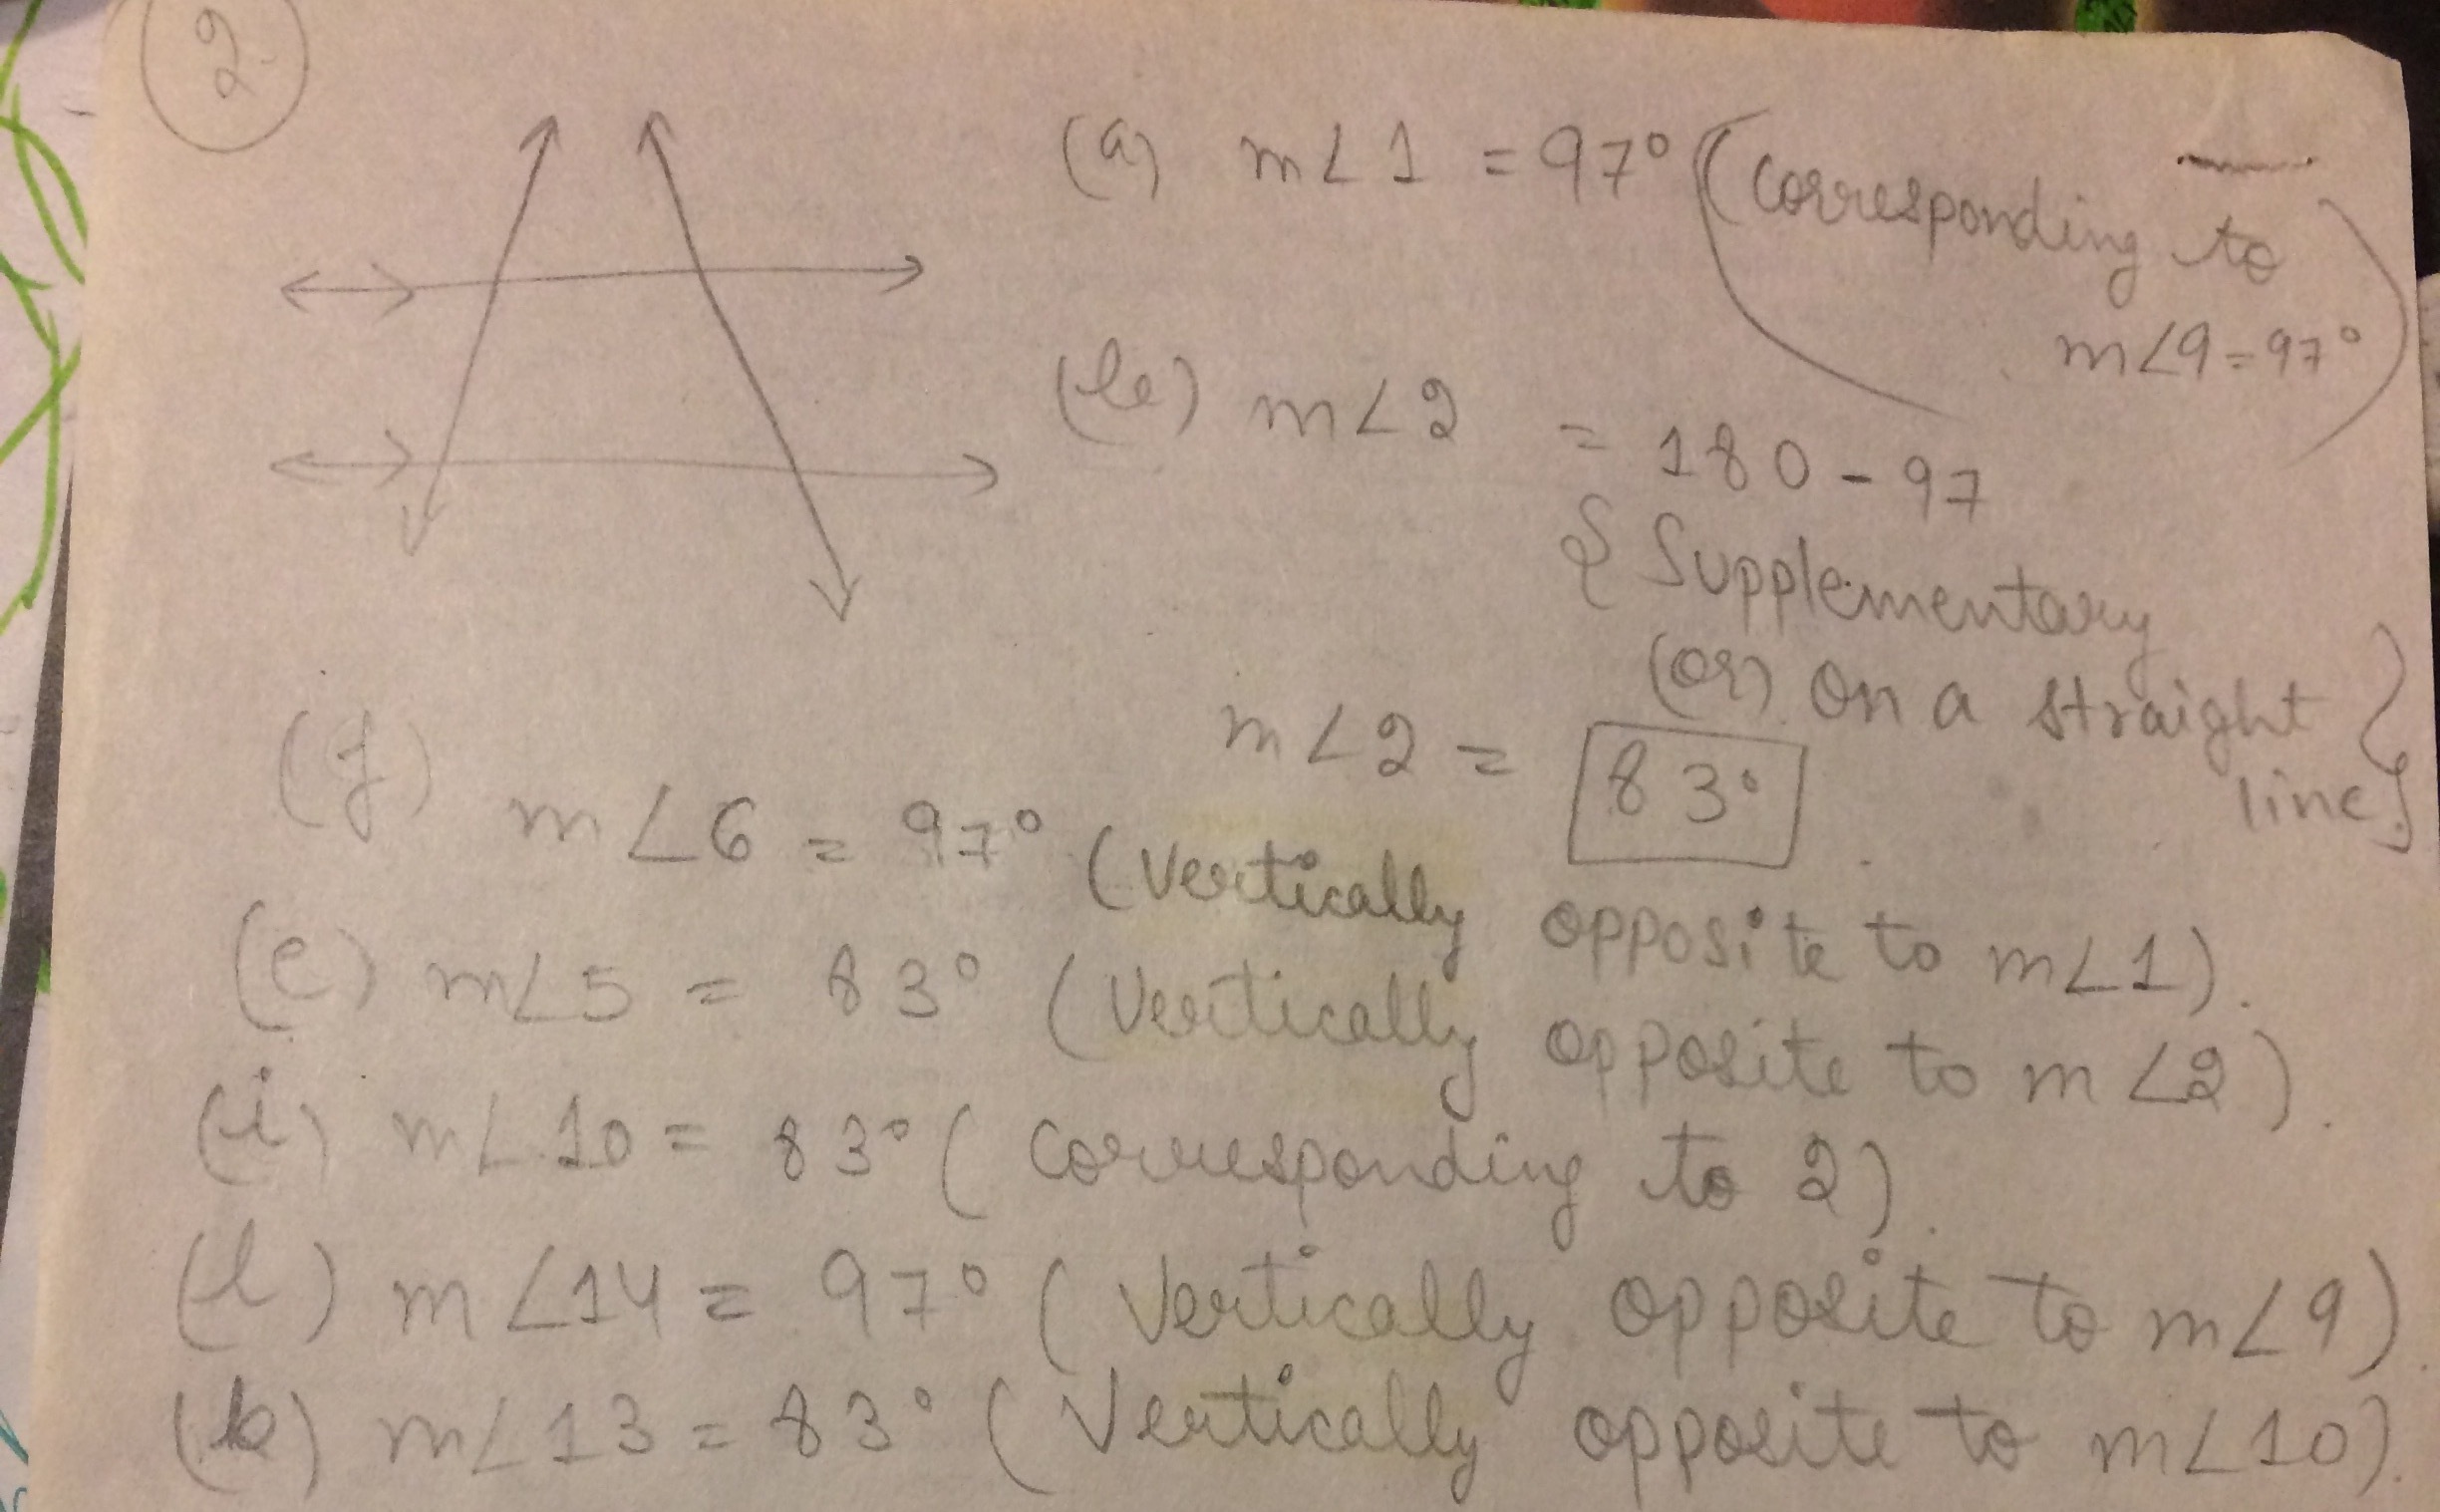 2.
(a) m∠1 = 97° (Corresponding to
m∠9=97°)
(b) m∠2 = 180-97
{Supplementary
(or) on a straight
line}
m∠2 = 83°
(f) m∠6 = 97° (Vertically opposite to m∠1).
(e) m∠5 = 83° (Vertically opposite to m∠2).
(i) m∠10 = 83° (Corresponding to 2).
(l) m∠14 = 97° (Vertically opposite to m∠9).
(k) m∠13 = 83° (Vertically opposite to m∠10).